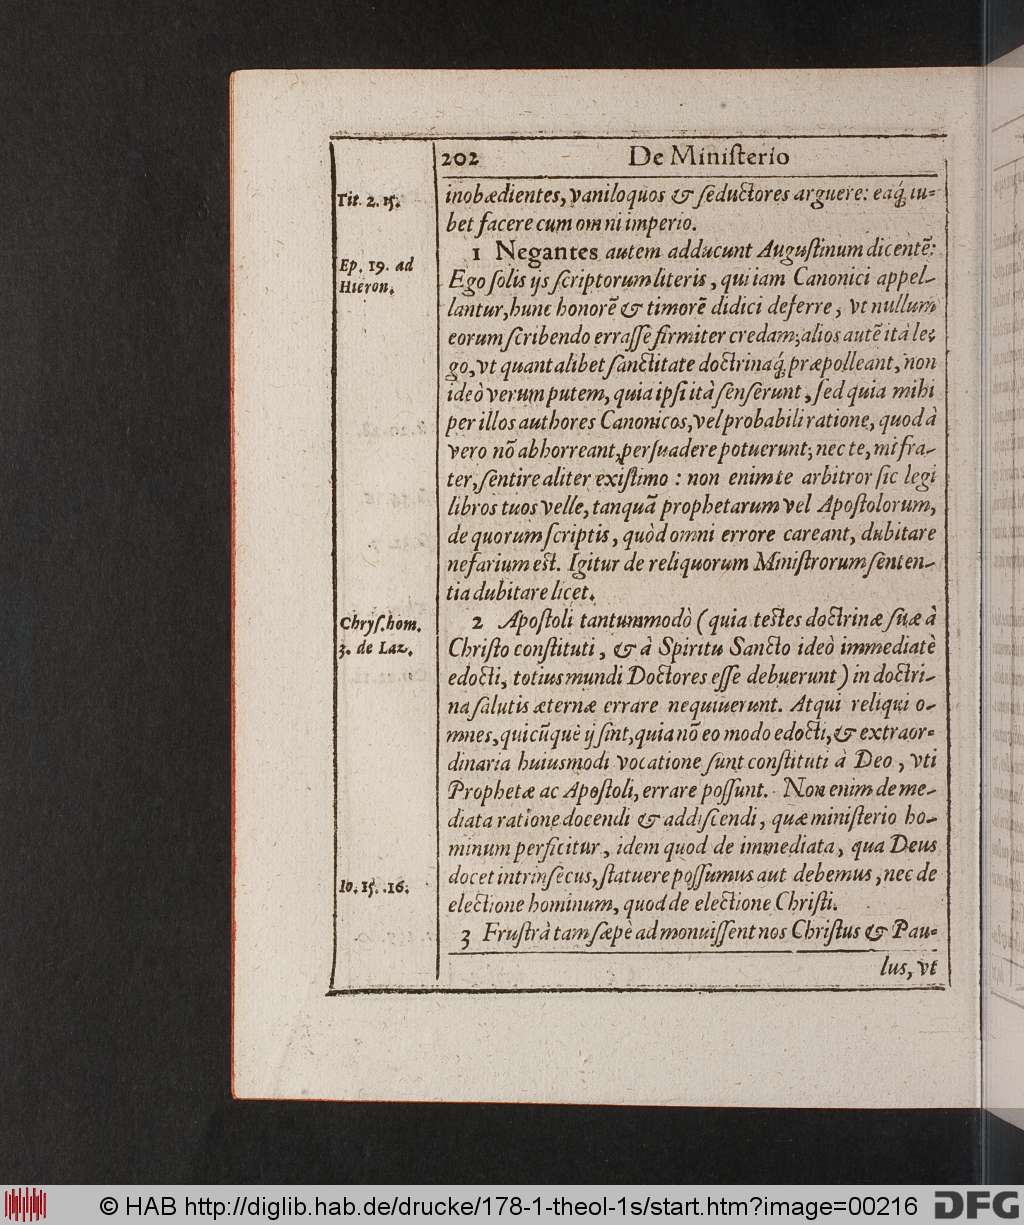 202 De Miniſterio
Tit. 2. 15.
inobædientes, vaniloquos & ſeductores arguere: eaq́; iu-
bet facere cum omni imperio.
1 Negantes autem adducunt Auguſtinum dicentẽ:
Ep. 19. ad
Hieron.
Ego ſolis ijs ſcriptorum literis, qui iam Canonici appel-
lantur, hunc honorẽ & timorẽ didici deferre, vt nullum
eorum ſcribendo erraſſe firmiter credam; alios autẽ ità le-
go, vt quantalibet ſanctitate doctrinaq́; præpolleant, non
ideò verum putem, quia ipſi ità ſenſerunt, ſed quia mihi
per illos authores Canonicos, vel probabili ratione, quod à
vero nõ abhorreant, perſuadere potuerunt; nec te, mi fra-
ter, ſentire aliter exiſtimo: non enim te arbitror ſic legi
libros tuos velle, tanquã prophetarum vel Apoſtolorum,
de quorum ſcriptis, quòd omni errore careant, dubitare
nefarium eſt. Igitur de reliquorum Miniſtrorum ſenten-
tia dubitare licet.
Chryſ. hom.
3. de Laz.
2 Apoſtoli tantummodò (quia teſtes doctrinæ ſuæ à
Chriſto conſtituti, & à Spiritu Sancto ideò immediatè
edocti, totius mundi Doctores eſſe debuerunt) in doctri-
na ſalutis æternæ errare nequiuerunt. Atqui reliqui o-
mnes, quicũquè ij ſint, quia nõ eo modo edocti, & extraor-
dinaria huiusmodi vocatione ſunt conſtituti à Deo, vti
Prophetæ ac Apoſtoli, errare poſſunt. Non enim de me-
diata ratione docendi & addiſcendi, quæ miniſterio ho-
minum perficitur, idem quod de immediata, qua Deus
docet intrinſecus, ſtatuere poſſumus aut debemus, nec de
electione hominum, quod de electione Chriſti.
Io. 15. 16.
3 Fruſtrà tam ſæpè admonuiſſent nos Chriſtus & Pau-
lus, vt
© HAB http://diglib.hab.de/drucke/178-1-theol-1s/start.htm?image=00216
DFG